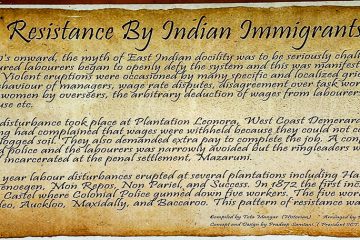 Resistance By Indian Immigrants
0's onward, the myth of East Indian docility was to be seriously chall
red labourers began to openly defy the system and this was manifest
Violent eruptions were occasioned by many specific and localized gr
behaviour of managers, wage rate disputes, disagreement over task wor
women by overseers, the arbitrary deduction of wages from labourer
use etc.
disturbance took place at Plantation Leonora, West Coast Demerar
ng had complained that wages were withheld because they could not co
logged soil. They also demanded extra pay to complete the job. A con
police and the labourers was narrowly avoided but the ringleaders w
incarcerated at the penal settlement, Mazaruni.
year labour disturbances erupted at several plantations including Ha
enoegen, Mon Repos, Non Pariel, and Success. In 1872 the first
Castel where Colonial Police gunned down five workers. The five wor
leo, Auckloo, Maxidally, and Baccaroo. This pattern of resistance w
Compiled by Tota Mangar (Historian)
Concept and Design by Pradeep Samtani